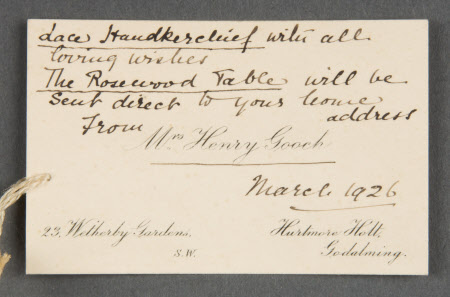 Lace Handkerchief with all
loving wishes
The Rosewood Table will be
Sent direct to your home
address
From
Mrs Henry Gooch
March 1926
23, Wetherby Gardens,
S.W.
Hurtmore Holt,
Godalming.